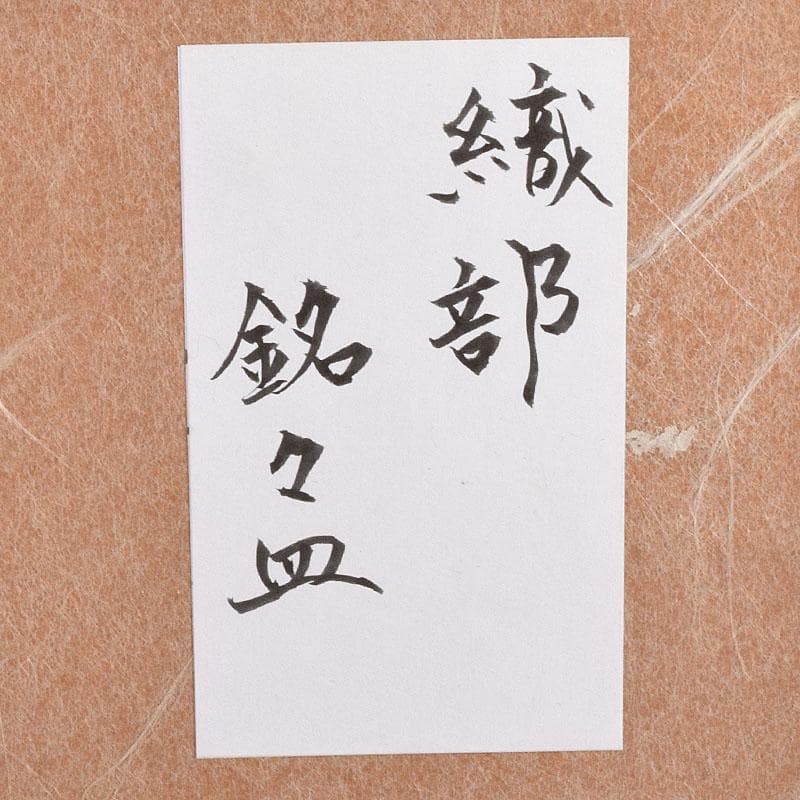 織部
銘々皿